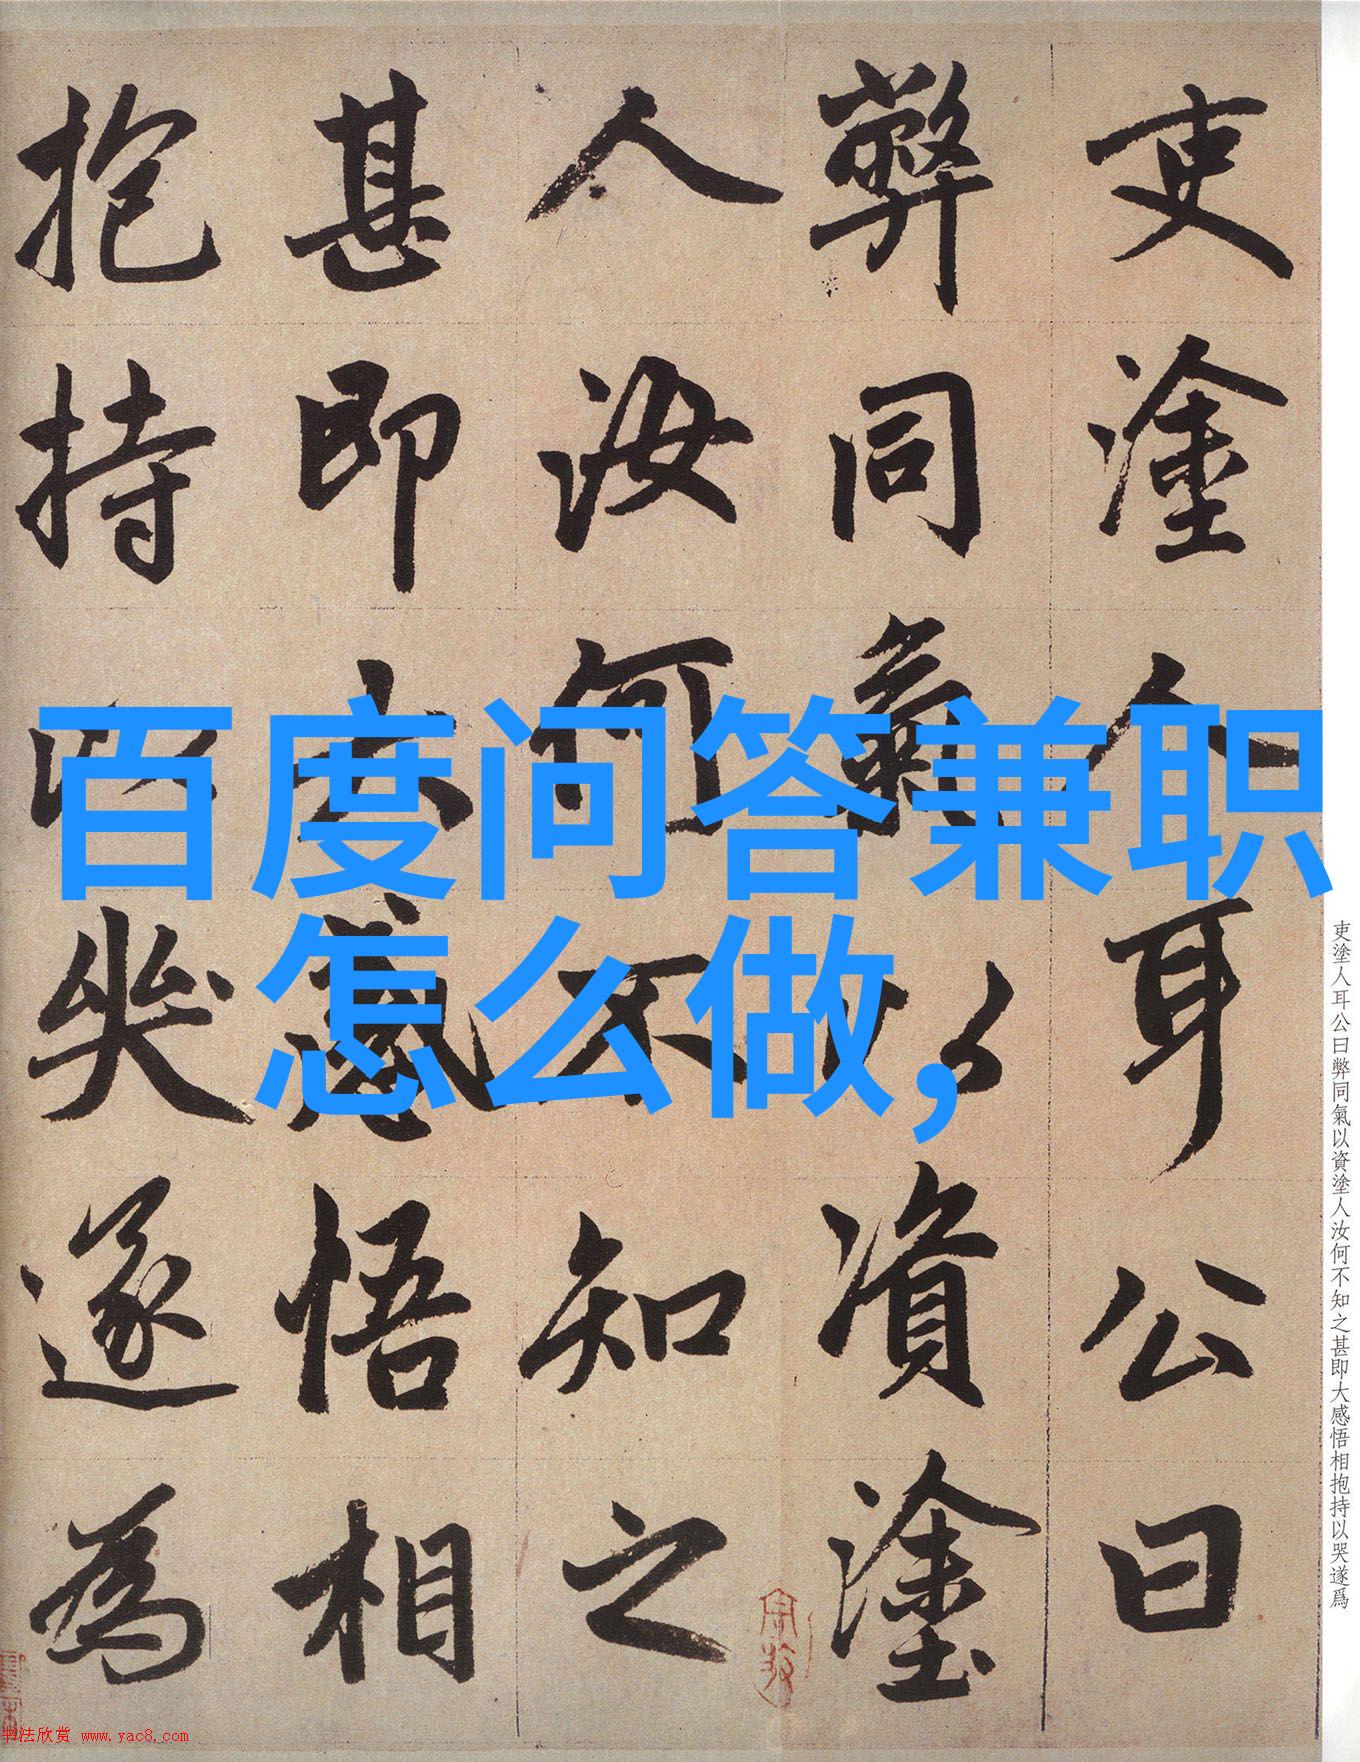 百度问答兼职
怎么做,
吏塗人耳公曰
弊同氣以資塗
人汝何不知之
甚即大感悟相
抱持以哭遂為
吏塗人耳公曰弊同氣以資塗人汝何不知之甚即大感悟相抱持以哭遂爲
书法欣赏 www.yac8.com